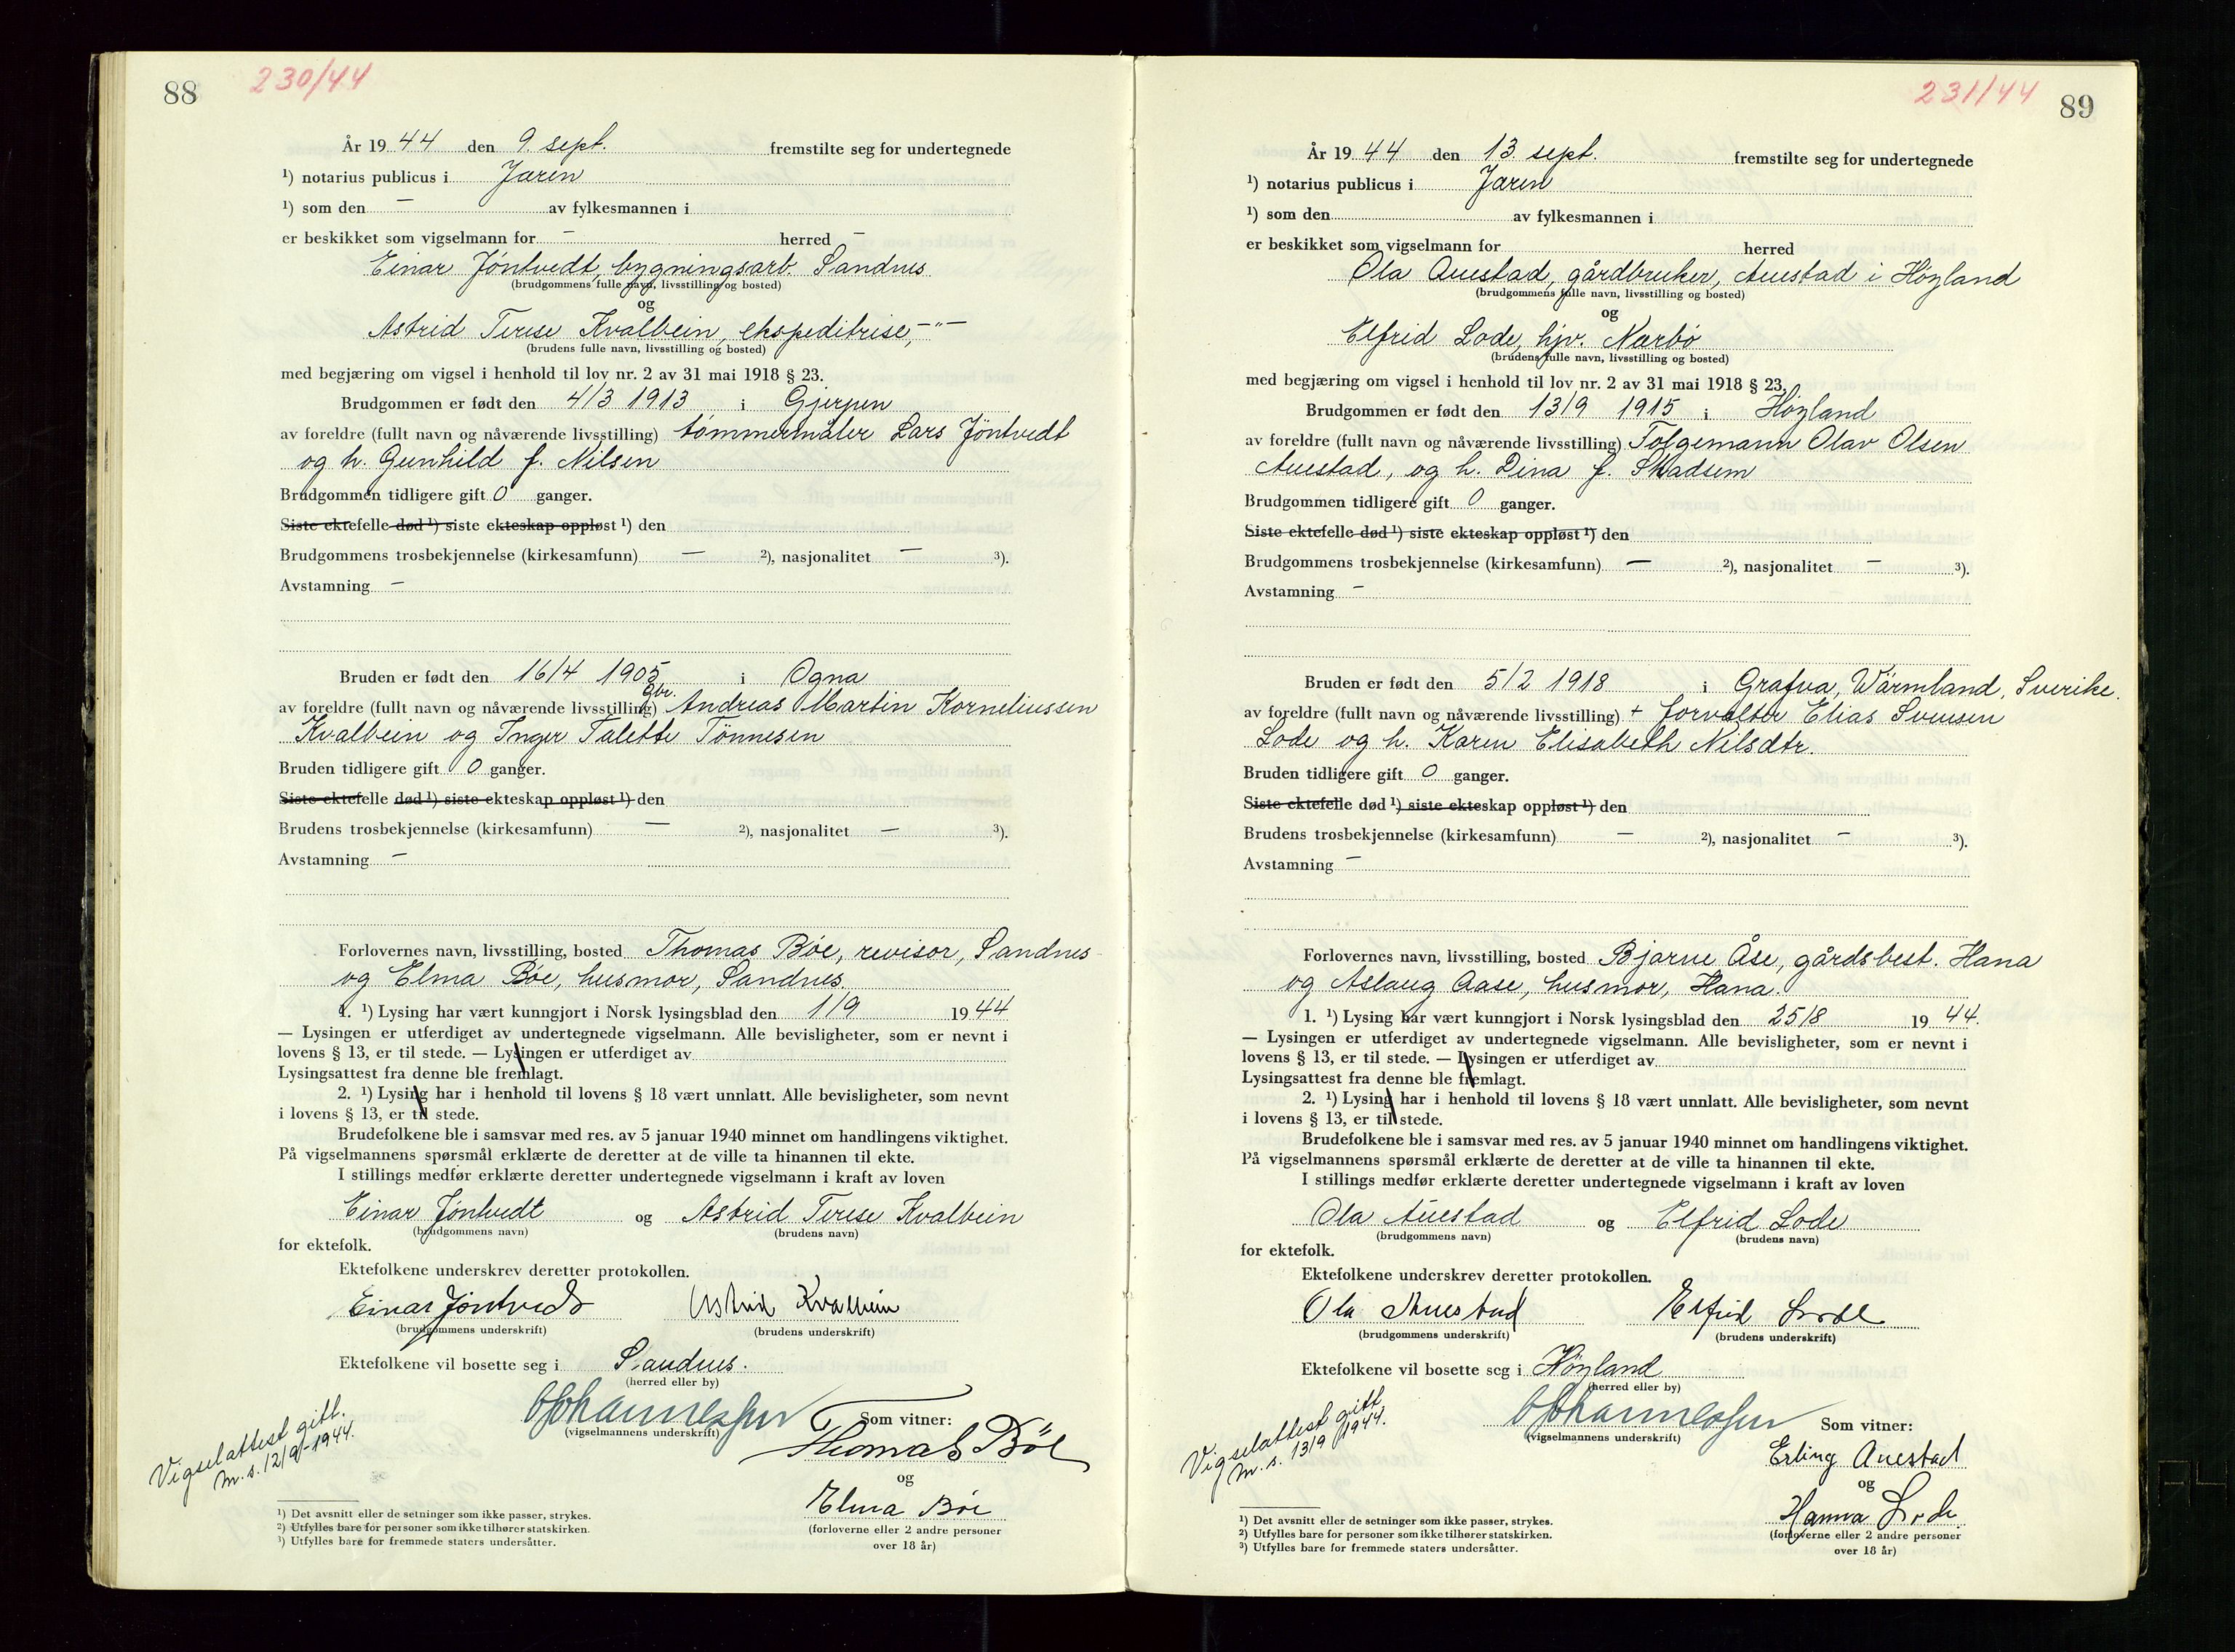 88 230/44
År 19 44 den 9. sept. fremstilte seg for undertegnede
¹) notarius publicus i Jæren
¹) som den — av fylkesmannen i
er beskikket som vigselmann for — herred —
Einar Jöntvedt, bygningsarb. Sandnes
(brudgommens fulle navn, livsstilling og bosted)
og
Astrid Terese Kvalbein, ekspeditrise, —"—
(brudens fulle navn, livsstilling og bosted)
med begjæring om vigsel i henhold til lov nr. 2 av 31 mai 1918 § 23.
Brudgommen er født den 4/3 1913 i Gjerpen
av foreldre (fullt navn og nåværende livsstilling) tømmermåler Lars Jöntvedt
og h. Gunhild f. Nilsen
Brudgommen tidligere gift 0 ganger.
Siste ektefelle død ¹) siste ekteskap oppløst ¹) den
Brudgommens trosbekjennelse (kirkesamfunn) — ²), nasjonalitet — ³).
Avstamning —
Bruden er født den 16/4 1905 i Ogna
gbr.
av foreldre (fullt navn og nåværende livsstilling) Andreas Martin Korneliussen
Kvalbein og Inger Talette Tönnesen
Bruden tidligere gift 0 ganger.
Siste ektefelle død ¹) siste ekteskap oppløst ¹) den
Brudens trosbekjennelse (kirkesamfunn) — ²), nasjonalitet — ³).
Avstamning —
Forlovernes navn, livsstilling, bosted Thomas Böe, revisor, Sandnes
og Elma Böe, husmor, Sandnes.
1. ¹) Lysing har vært kunngjort i Norsk lysingsblad den 1/9 19 44
— Lysingen er utferdiget av undertegnede vigselmann. Alle bevisligheter, som er nevnt i
lovens § 13, er til stede. — Lysingen er utferdiget av
Lysingsattest fra denne ble fremlagt.
2. ¹) Lysing har i henhold til lovens § 18 vært unnlatt. Alle bevisligheter, som nevnt
i lovens § 13, er til stede.
Brudefolkene ble i samsvar med res. av 5 januar 1940 minnet om handlingens viktighet.
På vigselmannens spørsmål erklærte de deretter at de ville ta hinannen til ekte.
I stillings medfør erklærte deretter undertegnede vigselmann i kraft av loven
Einar Jöntvedt og Astrid Terese Kvalbein
(brudgommens navn) (brudens navn)
for ektefolk.
Ektefolkene underskrev deretter protokollen.
Einar Jöntvedt Astrid Kvalbein
(brudgommens underskrift) (brudens underskrift)
Ektefolkene vil bosette seg i Sandnes.
(herred eller by)
Johannessen
(vigselmannens underskrift)
Som vitner:
Thomas Böe
og
Elma Böe
(forloverne eller 2 andre personer
over 18 år)
Vigselattest gitt.
m. s. 12/9-1944.
¹) Det avsnitt eller de setninger som ikke passer, strykes.
²) Utfylles bare for personer som ikke tilhører statskirken.
³) Utfylles bare for fremmede staters undersåtter.
231/44 89
År 19 44 den 13. sept. fremstilte seg for undertegnede
¹) notarius publicus i Jæren
¹) som den av fylkesmannen i
er beskikket som vigselmann for herred
Ola Auestad, gårdbruker, Auestad i Höyland
(brudgommens fulle navn, livsstilling og bosted)
og
Elfrid Lode, hjv. Nærbö
(brudens fulle navn, livsstilling og bosted)
med begjæring om vigsel i henhold til lov nr. 2 av 31 mai 1918 § 23.
Brudgommen er født den 13/9 1915 i Höyland
av foreldre (fullt navn og nåværende livsstilling) Folgemann Olav Olsen
Auestad, og h. Dina f. Skadsem
Brudgommen tidligere gift 0 ganger.
Siste ektefelle død ¹) siste ekteskap oppløst ¹) den
Brudgommens trosbekjennelse (kirkesamfunn) — ²), nasjonalitet — ³).
Avstamning —
Bruden er født den 5/2 1918 i Grafva, Wärmland, Sverike.
av foreldre (fullt navn og nåværende livsstilling) + forvalter Elias Svensen
Lode og h. Karen Elisabeth Nilsdtr.
Bruden tidligere gift 0 ganger.
Siste ektefelle død ¹) siste ekteskap oppløst ¹) den
Brudens trosbekjennelse (kirkesamfunn) — ²), nasjonalitet — ³).
Avstamning —
Forlovernes navn, livsstilling, bosted Bjarne Åse, gårdsbest. Hana
og Aslaug Aase, husmor, Hana.
1. ¹) Lysing har vært kunngjort i Norsk lysingsblad den 25/8 19 44.
— Lysingen er utferdiget av undertegnede vigselmann. Alle bevisligheter, som er nevnt i
lovens § 13, er til stede. — Lysingen er utferdiget av
Lysingsattest fra denne ble fremlagt.
2. ¹) Lysing har i henhold til lovens § 18 vært unnlatt. Alle bevisligheter, som nevnt
i lovens § 13, er til stede.
Brudefolkene ble i samsvar med res. av 5 januar 1940 minnet om handlingens viktighet.
På vigselmannens spørsmål erklærte de deretter at de ville ta hinannen til ekte.
I stillings medfør erklærte deretter undertegnede vigselmann i kraft av loven
Ola Auestad og Elfrid Lode
(brudgommens navn) (brudens navn)
for ektefolk.
Ektefolkene underskrev deretter protokollen.
Ola Auestad Elfrid Lode
(brudgommens underskrift) (brudens underskrift)
Ektefolkene vil bosette seg i Höyland
(herred eller by)
Johannessen
(vigselmannens underskrift)
Som vitner:
Erling Auestad
og
Hanna Lode.
(forloverne eller 2 andre personer
over 18 år)
Vigselattest gitt
m. s. 13/9 1944.
¹) Det avsnitt eller de setninger som ikke passer, strykes.
²) Utfylles bare for personer som ikke tilhører statskirken.
³) Utfylles bare for fremmede staters undersåtter.